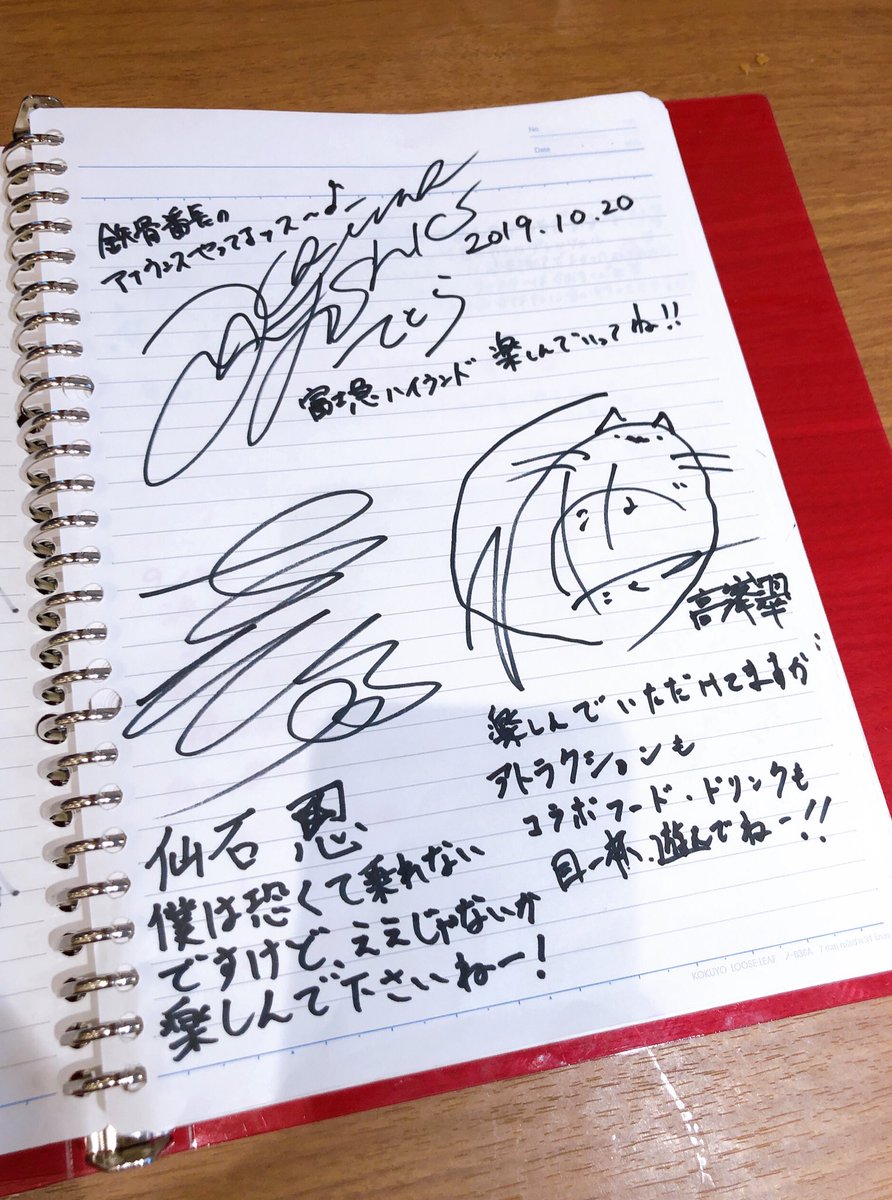 No.
Date
鉄骨番長の
アナウンスやってまッス〜よー
2019.10.20
てとら
富士急ハイランド 楽しんでいってね!!
高峯翠
楽しんでいただけてますか
アトラクションも
コラボフード・ドリンクも
目一杯、遊んでねー!!
仙石 忍
僕は恐くて乗れない
ですけど、ええじゃないか
楽しんで下さいねー!
KOKUYO LOOSE-LEAF ノ-836A 7 mm ruled×31 lines